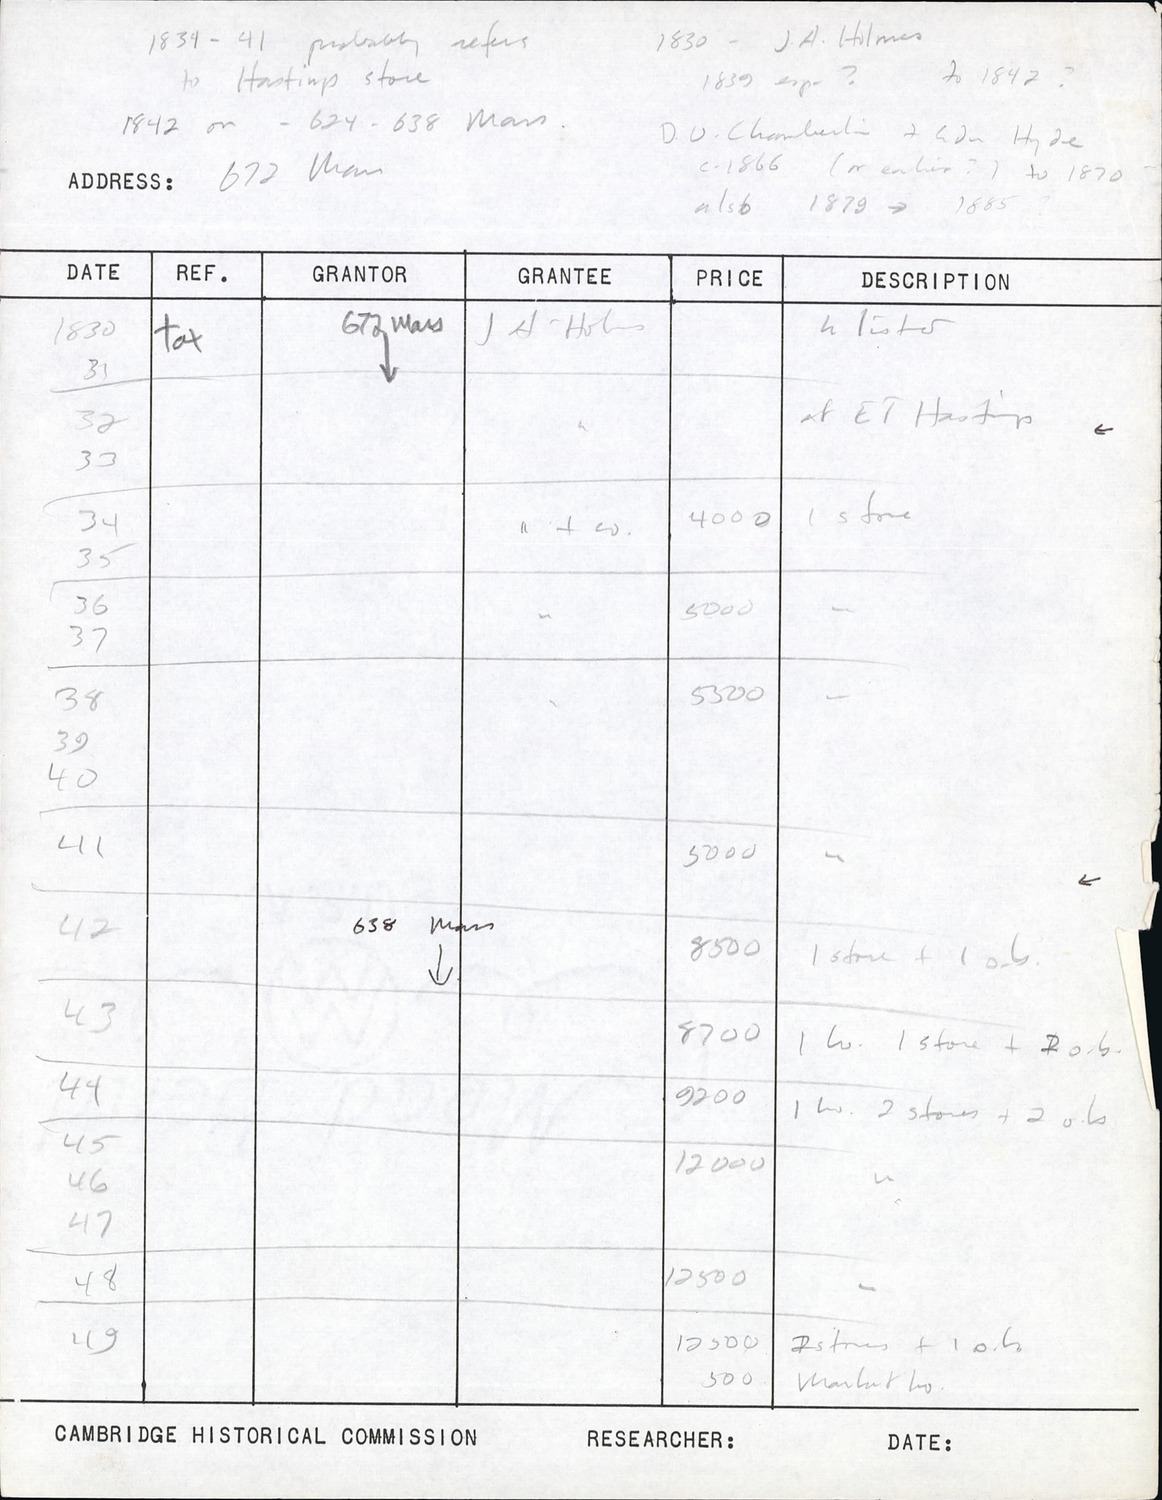 1834 - 41 probably refers
to Hastings store
1842 on - 624 - 638 Mass.
1830 - J.A. Holmes
1839 esp ? to 1842 ?
D. U. Chamberlin + Hyde
c. 1866 (or earlier?) to 1870
also 1879 → 1885 ?
ADDRESS: 672 Mass
DATE REF. GRANTOR GRANTEE PRICE DESCRIPTION
1830 tax 672 Mass J A Holmes listed
31
32 " at ET Hastings ←
33
34 " + co. 4000 1 store
35
36 " 5000 "
37
38 " 5300 "
39
40
41 5000 " ←
42 638 Mass 8500 1 store + 1 o.b.
43 8700 1 ho. 1 store + 2 o.b.
44 9200 1 ho. 2 stores + 2 o.b
45 12000 "
46 "
47
48 12500 "
49 12500 2 stores + 1 o.b
500 Market ho.
CAMBRIDGE HISTORICAL COMMISSION RESEARCHER: DATE: